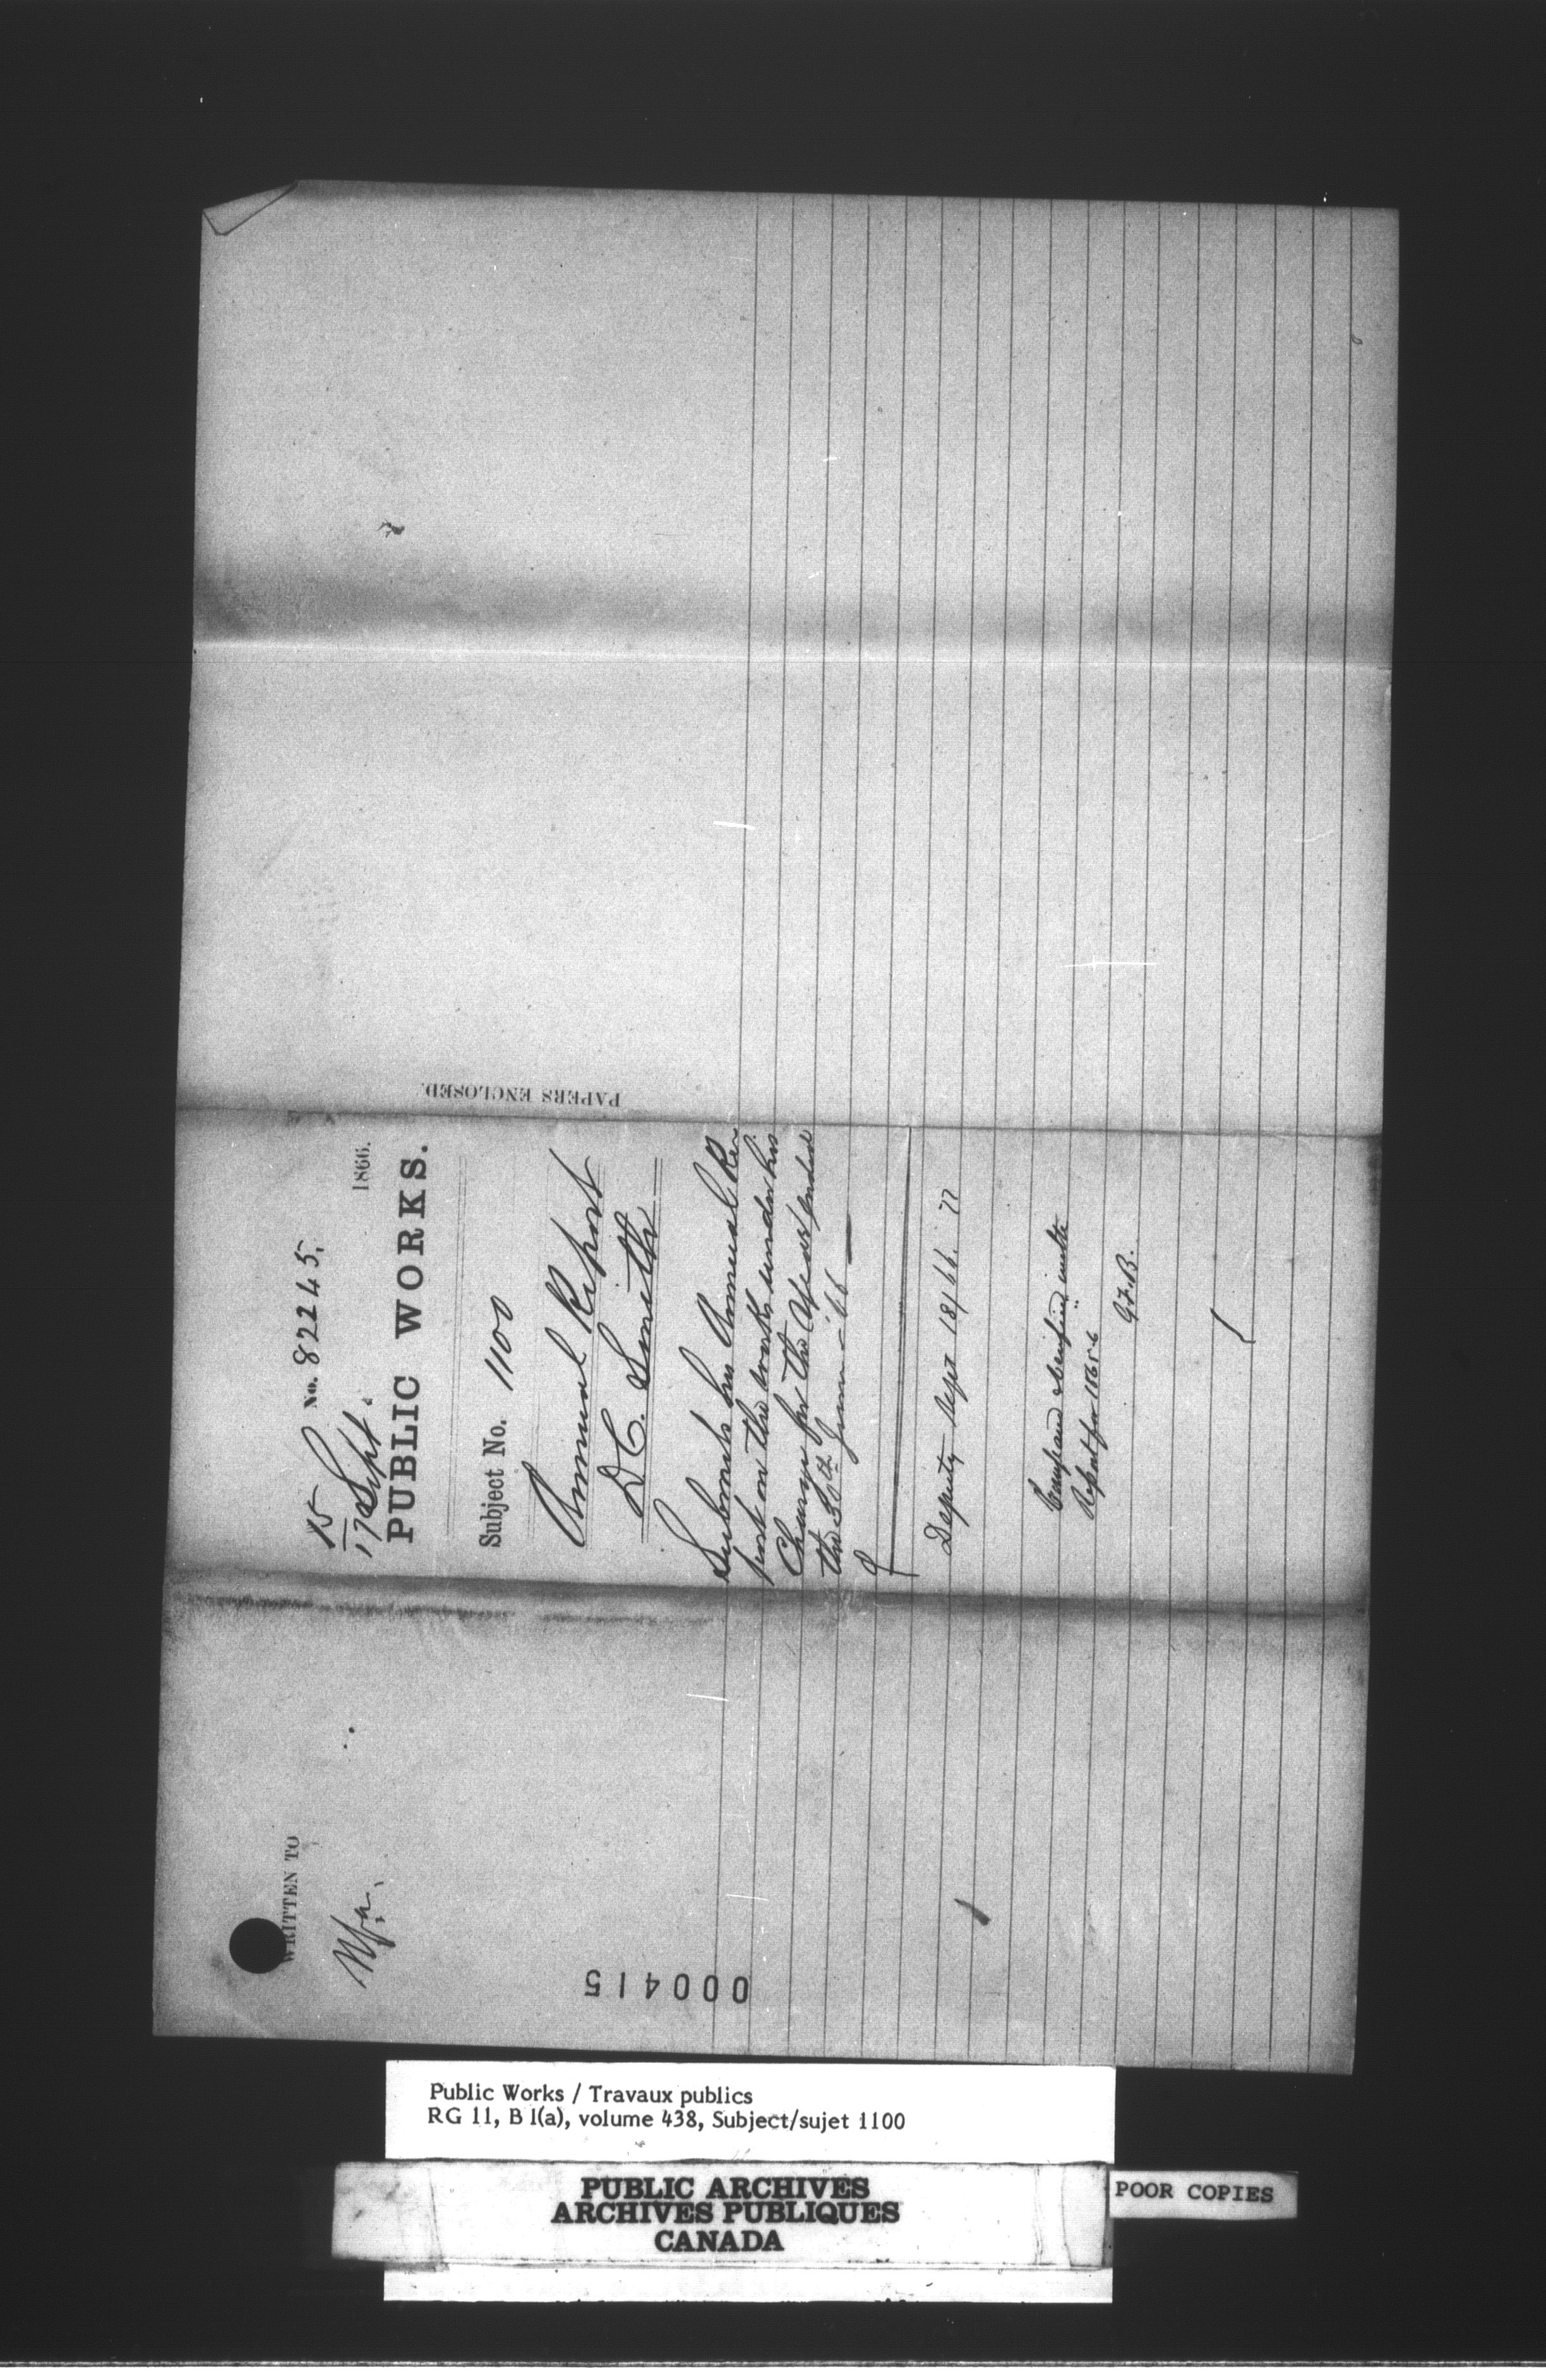 15 No. 82245.
17 Sept. 1866.
PUBLIC WORKS.
Subject No. 1100
Annual Report
D C. Smith
Submits his Annual Re-
port on the works under his
Charge for the Year ended
the 30th June - '66 —
Deputy Sept 18/66.
Report for 1865-6
G.F.B.
PAPERS ENCLOSED.
WRITTEN TO
000415
Public Works / Travaux publics
RG 11, B 1(a), volume 438, Subject/sujet 1100
PUBLIC ARCHIVES
ARCHIVES PUBLIQUES
CANADA
POOR COPIES